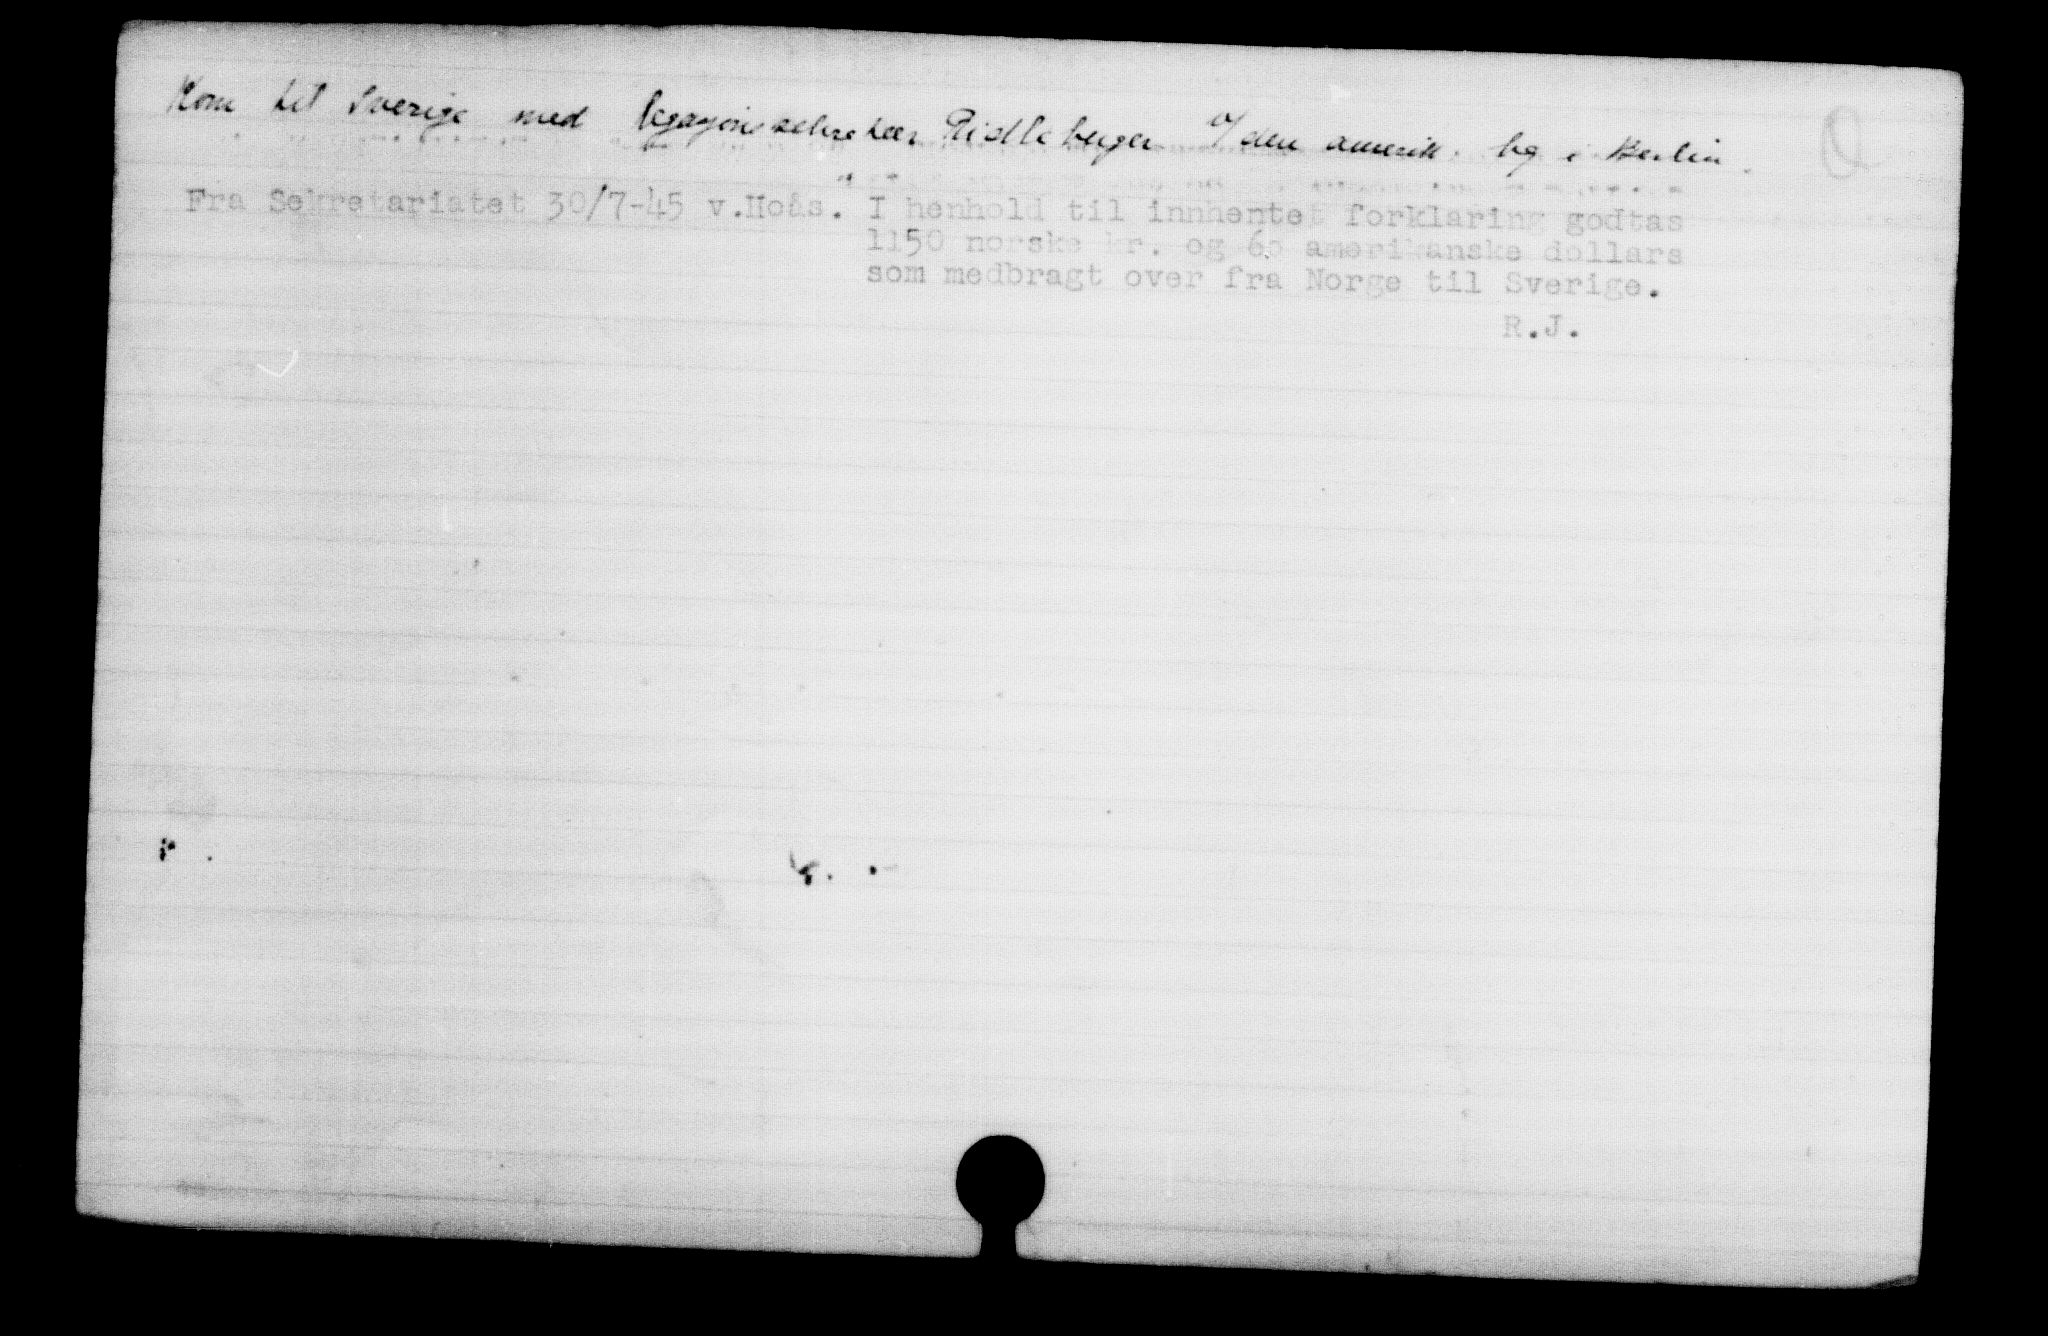 Kom til Sverige med legasjonssekretær Riddleberger v/ den amerik. leg i Berlin.
Fra Sekretariatet 30/7-45 v.Hoås." I henhold til innhentet forklaring godtas
1150 norske kr. og 60 amerikanske dollars
som medbragt over fra Norge til Sverige.
R.J.